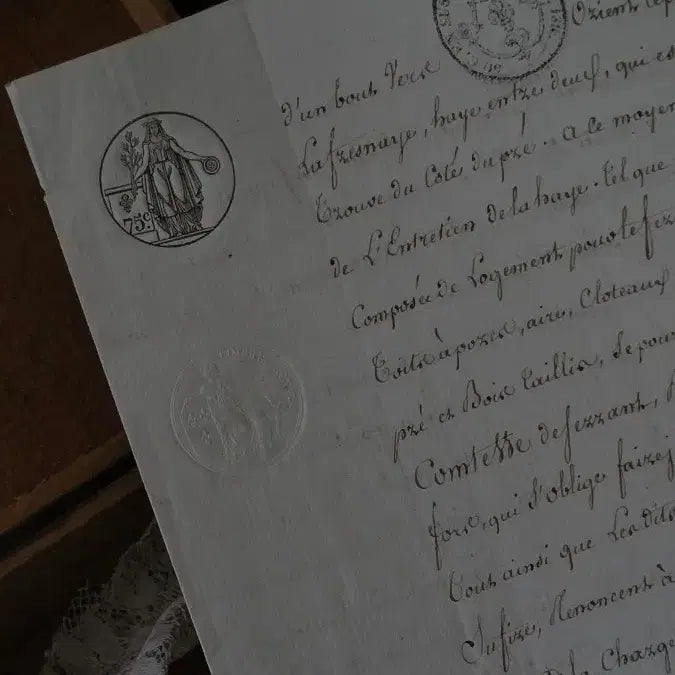 Orient
d'un bout Vers
Lafresnaye, haye entre deux, qui es
trouve du Coté du pré. a le moyen
de L'Entretien de la haye. tel que
75 c.
Composée de Logement pour le fer
toits à porcs, aire, Cloteaux
pré et Bois taillis, Se pour
Comtesse deferrant,
fors, qui s'oblige faire j
tout ainsi que Les dits
Sufire, Renoncent à
la Charge